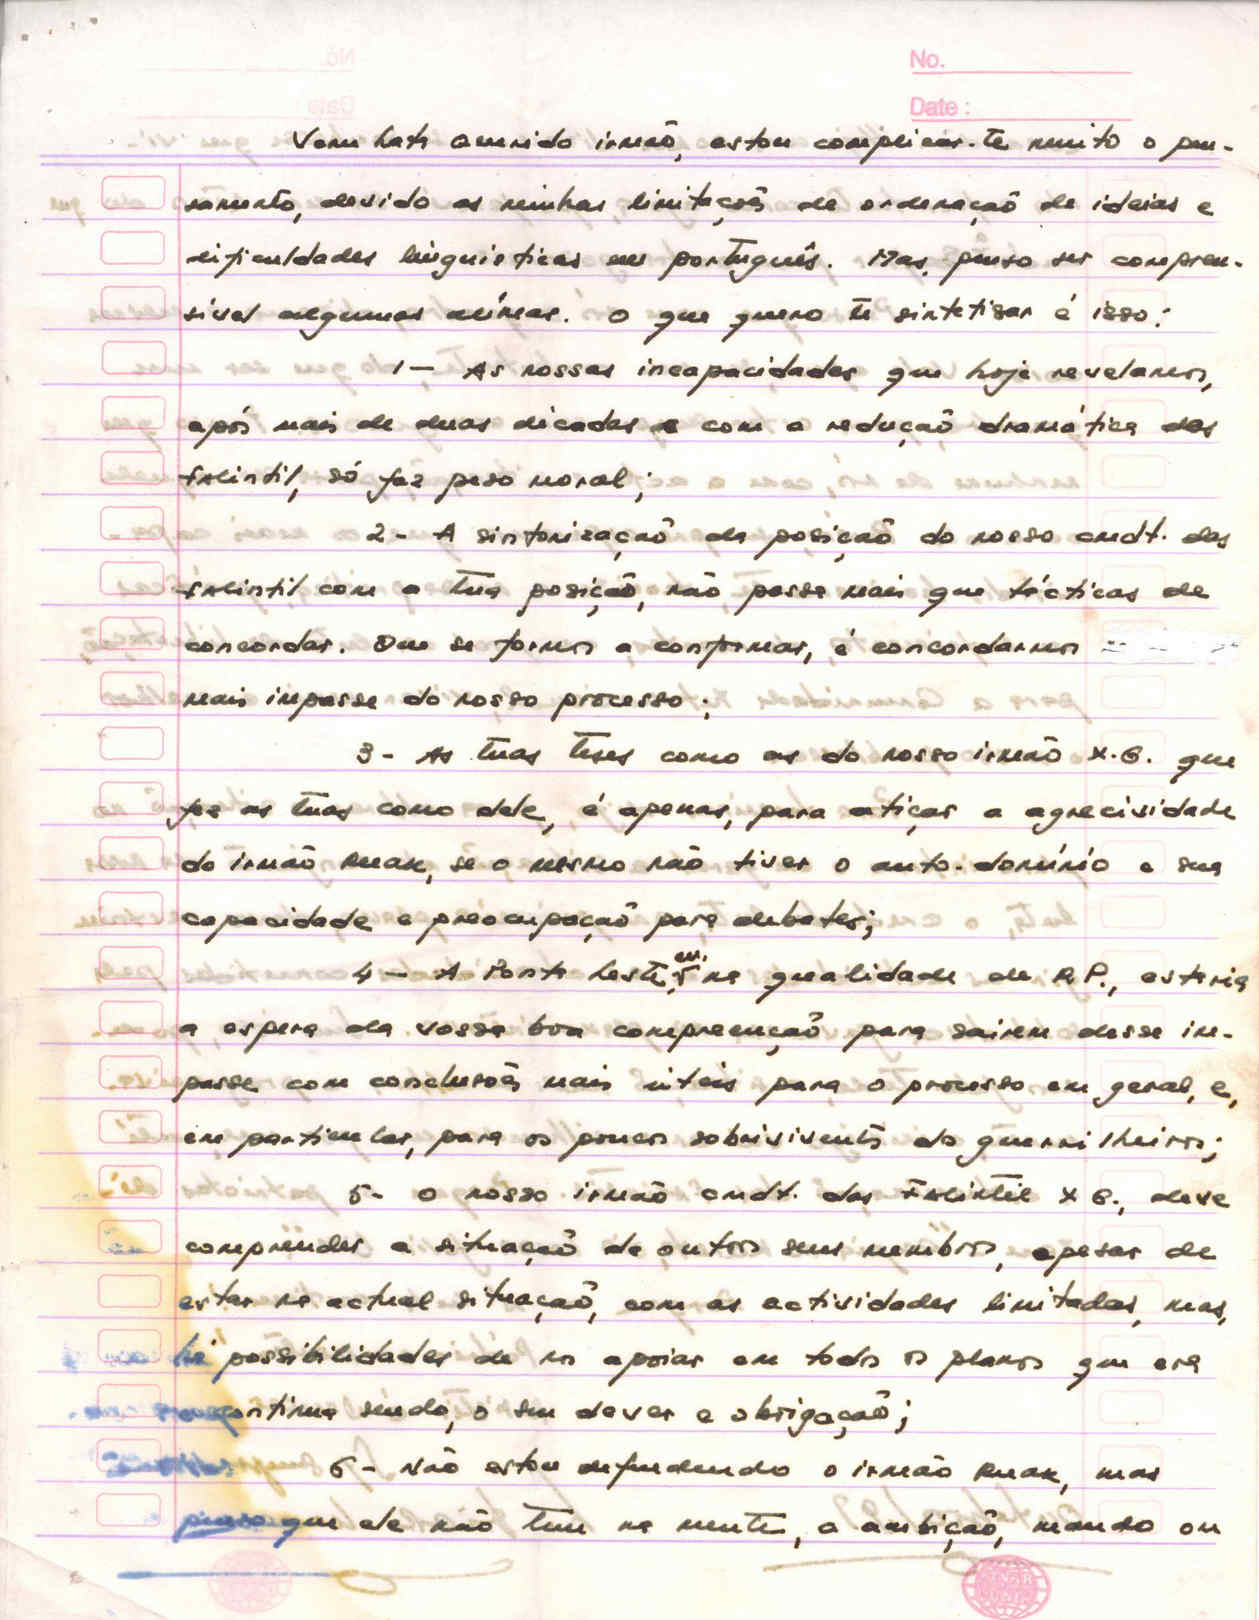 No.
Date :
querido irmão, estou complicar-te muito o pen-
samento, devido as minhas limitações de ordenação de ideias e
dificuldades linguisticas em português. Mas, penso ser compreen-
sível algumas alíneas. O que quero te sintetizar é isso:
1 - As nossas incapacidades que hoje revelamos,
após mais de duas décadas e com a redução dramática das
FALINTIL, só faz peso moral;
2 - A sintonização da posição do nosso cmdt. das
FALINTIL com a tua posição, não passa mais que tácticas de
concordar. Que se formos a confirmar, é concordarmos
mais impasse do nosso processo;
3 - As tuas teses como as do nosso irmão X.G. que
fez as tuas como dele, é apenas, para atiçar a agrecividade
do irmão Ruak, se o mesmo não tiver o auto-domínio e sua
capacidade e preocupação para debater;
4 - A Ponta Leste, eu, na qualidade de R.P., estaria
a espera da vossa boa compreenção para sairem desse im-
passe com conclusões mais uteis para o processo em geral, e,
em particular, para os poucos sobriviventes da guerrilheiros;
5 - O nosso irmão cmdt. das FALINTIL X G., deve
comprender a situação de outros seus membros, apesar de
estar na actual situação, com as actividades limitadas, mas,
há possibilidades de nos apoiar em todos os planos que era
continua sendo, o seu dever e obrigação;
6 - Não estou defendendo o irmão Ruak, mas
penso que ele não tem na mente, a ambição, mando ou